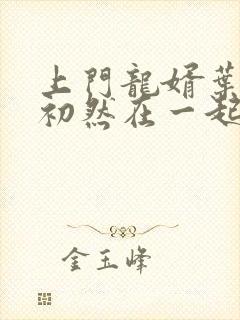 上門龍婿葉
初然在一起
金玉峰